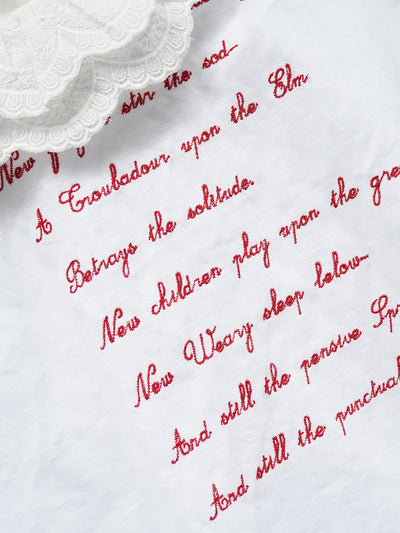 New stir the sod—
A Troubadour upon the Elm
Betrays the solitude.
New children play upon the gre
New Weary sleep below—
And still the pensive Spr
And still the punctual